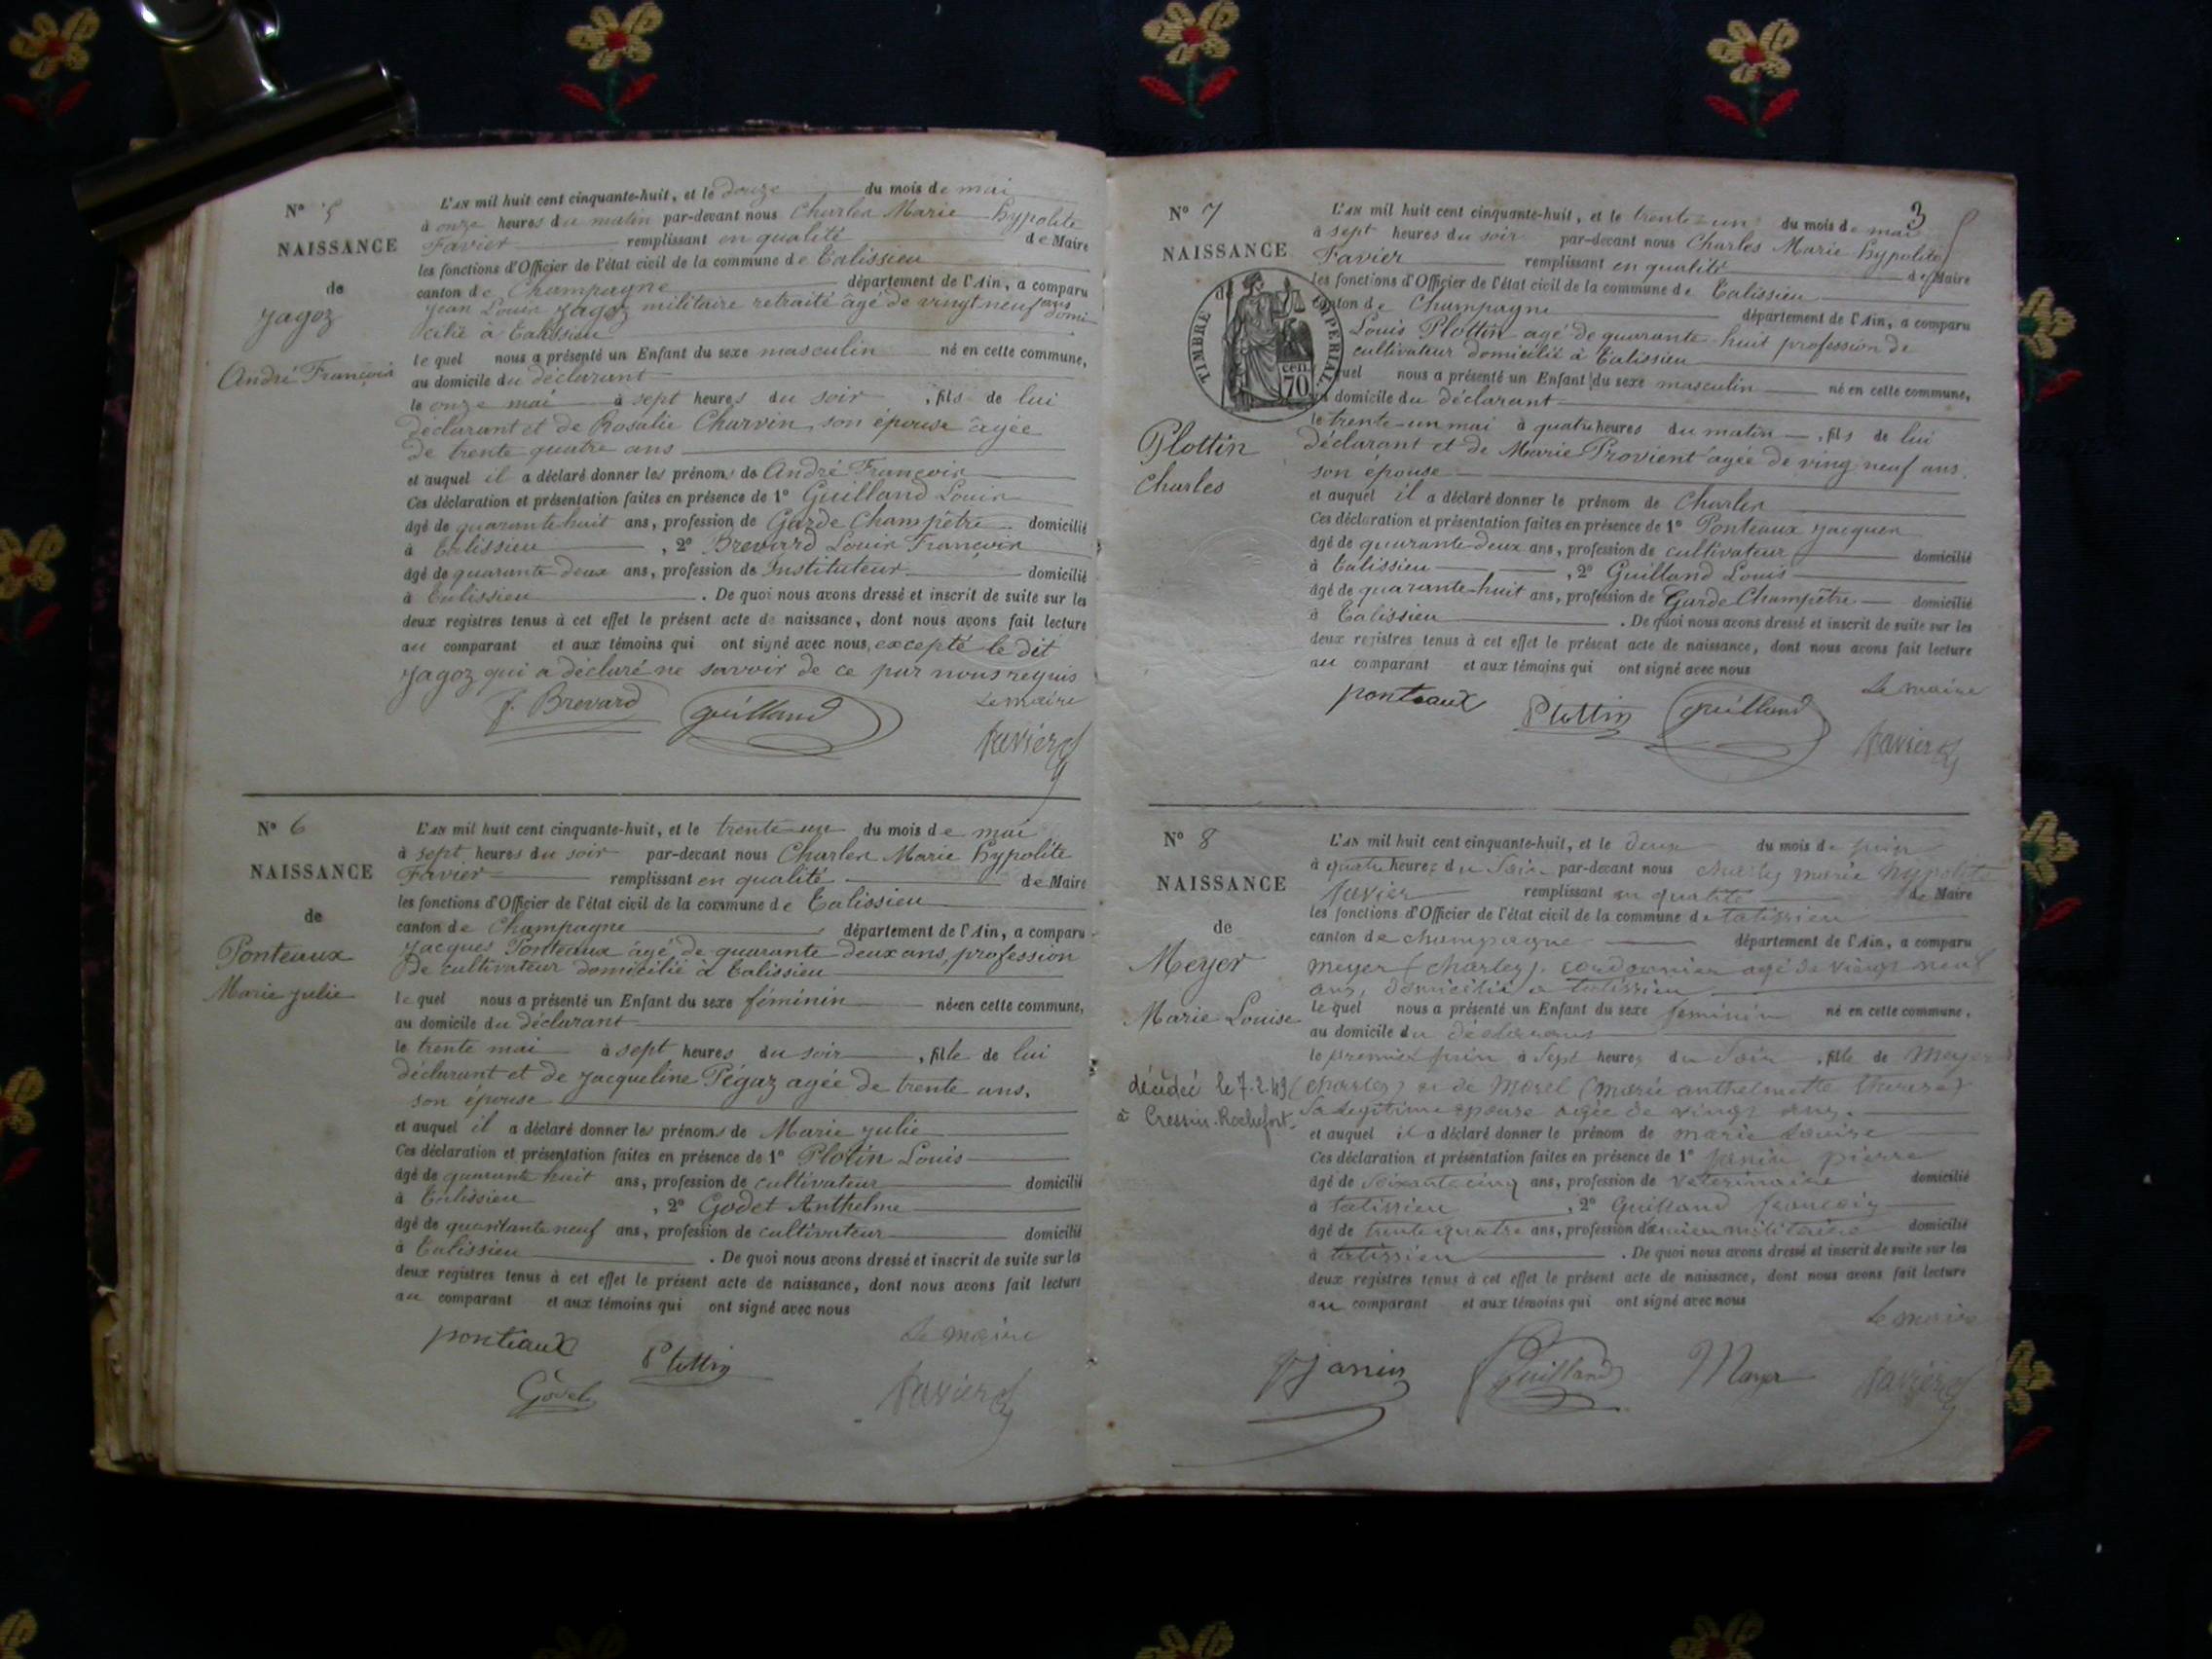 N° 5
NAISSANCE
de
Jagoz
André François
L'AN mil huit cent cinquante-huit, et le douze du mois de mai
à onze heures du matin par-devant nous Charles Marie hypolite
Favier remplissant en qualité de Maire
les fonctions d'Officier de l'état civil de la commune de Talissieu
canton de Champagne département de l'Ain, a comparu
Jean Louis Jagoz militaire retraité âgé de vingt neuf ans domi
cilié à Talissieu
le quel nous a présenté un Enfant du sexe masculin né en cette commune,
au domicile du déclarant
le onze mai à sept heures du soir, fils de lui
déclarant et de Rosalie Charvin son épouse âgée
de trente quatre ans
et auquel il a déclaré donner les prénoms de André François
Ces déclaration et présentation faites en présence de 1° Guilland Louis
âgé de quarante huit ans, profession de Garde Champêtre domicilié
à Talissieu, 2° Brevard Louis François
âgé de quarante deux ans, profession de Instituteur domicilié
à Talissieu. De quoi nous avons dressé et inscrit de suite sur les
deux registres tenus à cet effet le présent acte de naissance, dont nous avons fait lecture
au comparant et aux témoins qui ont signé avec nous, excepté le dit
Jagoz qui a déclaré ne savoir de ce par nous requis
Le maire
f. Brevard guilland
favier
N° 6
NAISSANCE
de
Ponteaux
Marie Julie
L'AN mil huit cent cinquante-huit, et le trente-un du mois de mai
à sept heures du soir par-devant nous Charles Marie hypolite
Favier remplissant en qualité de Maire
les fonctions d'Officier de l'état civil de la commune de Talissieu
canton de Champagne département de l'Ain, a comparu
Jacques Ponteaux âgé de quarante deux ans, profession
de cultivateur domicilié à Talissieu
le quel nous a présenté un Enfant du sexe féminin née en cette commune,
au domicile du déclarant
le trente mai à sept heures du soir, fille de lui
déclarant et de Jacqueline Pégaz agée de trente ans,
son épouse
et auquel il a déclaré donner les prénoms de Marie Julie
Ces déclaration et présentation faites en présence de 1° Plotin Louis
âgé de quarante huit ans, profession de cultivateur domicilié
à Talissieu, 2° Godet Anthelme
âgé de quarante neuf ans, profession de cultivateur domicilié
à Talissieu. De quoi nous avons dressé et inscrit de suite sur les
deux registres tenus à cet effet le présent acte de naissance, dont nous avons fait lecture
au comparant et aux témoins qui ont signé avec nous
ponteaux Plottin Le maire
Godet favier
3
N° 7
NAISSANCE
de
TIMBRE IMPERIAL
cen. 70
Plottin
Charles
L'AN mil huit cent cinquante-huit, et le trente-un du mois de mai
à sept heures du soir par-devant nous Charles Marie hypolite
Favier remplissant en qualité de Maire
les fonctions d'Officier de l'état civil de la commune de Talissieu
canton de Champagne département de l'Ain, a comparu
Louis Plottin agé de quarante huit profession de
cultivateur domicilié à Talissieu
quel nous a présenté un Enfant du sexe masculin né en cette commune,
domicile du déclarant
le trente-un mai à quatre heures du matin, fils de lui
déclarant et de Marie Provient agée de ving neuf ans,
son épouse
et auquel il a déclaré donner le prénom de Charles
Ces déclaration et présentation faites en présence de 1° Ponteaux Jacques
âgé de quarante-deux ans, profession de cultivateur domicilié
à Talissieu, 2° Guilland Louis
âgé de quarante-huit ans, profession de Garde Champêtre domicilié
à Talissieu. De quoi nous avons dressé et inscrit de suite sur les
deux registres tenus à cet effet le présent acte de naissance, dont nous avons fait lecture
au comparant et aux témoins qui ont signé avec nous
ponteaux Plottin guilland Le maire
favier
N° 8
NAISSANCE
de
Meyer
Marie Louise
décédée le 7.2.49
à Cressin-Rochefort
L'AN mil huit cent cinquante-huit, et le deux du mois de juin
à quatre heures du soir par-devant nous charles marie hypolite
favier remplissant en qualité de Maire
les fonctions d'Officier de l'état civil de la commune de talissieu
canton de champagne département de l'Ain, a comparu
meyer (charles), cordonnier agé de vingt neuf
ans, domicilié à talissieu
le quel nous a présenté un Enfant du sexe feminin né en cette commune,
au domicile du déclarant
le premier juin à sept heures du soir, fille de Meyer
(charles) et de Morel (marie anthelmette therese)
sa legitime epouse agée de vingt ans.
et auquel il a déclaré donner le prénom de marie Louise
Ces déclaration et présentation faites en présence de 1° Janin pierre
âgé de soixante cinq ans, profession de veterinaire domicilié
à talissieu, 2° Guilland francois
âgé de trente quatre ans, profession d'ancien militaire domicilié
à talissieu. De quoi nous avons dressé et inscrit de suite sur les
deux registres tenus à cet effet le présent acte de naissance, dont nous avons fait lecture
au comparant et aux témoins qui ont signé avec nous
Le maire
Janin Guilland Meyer favier